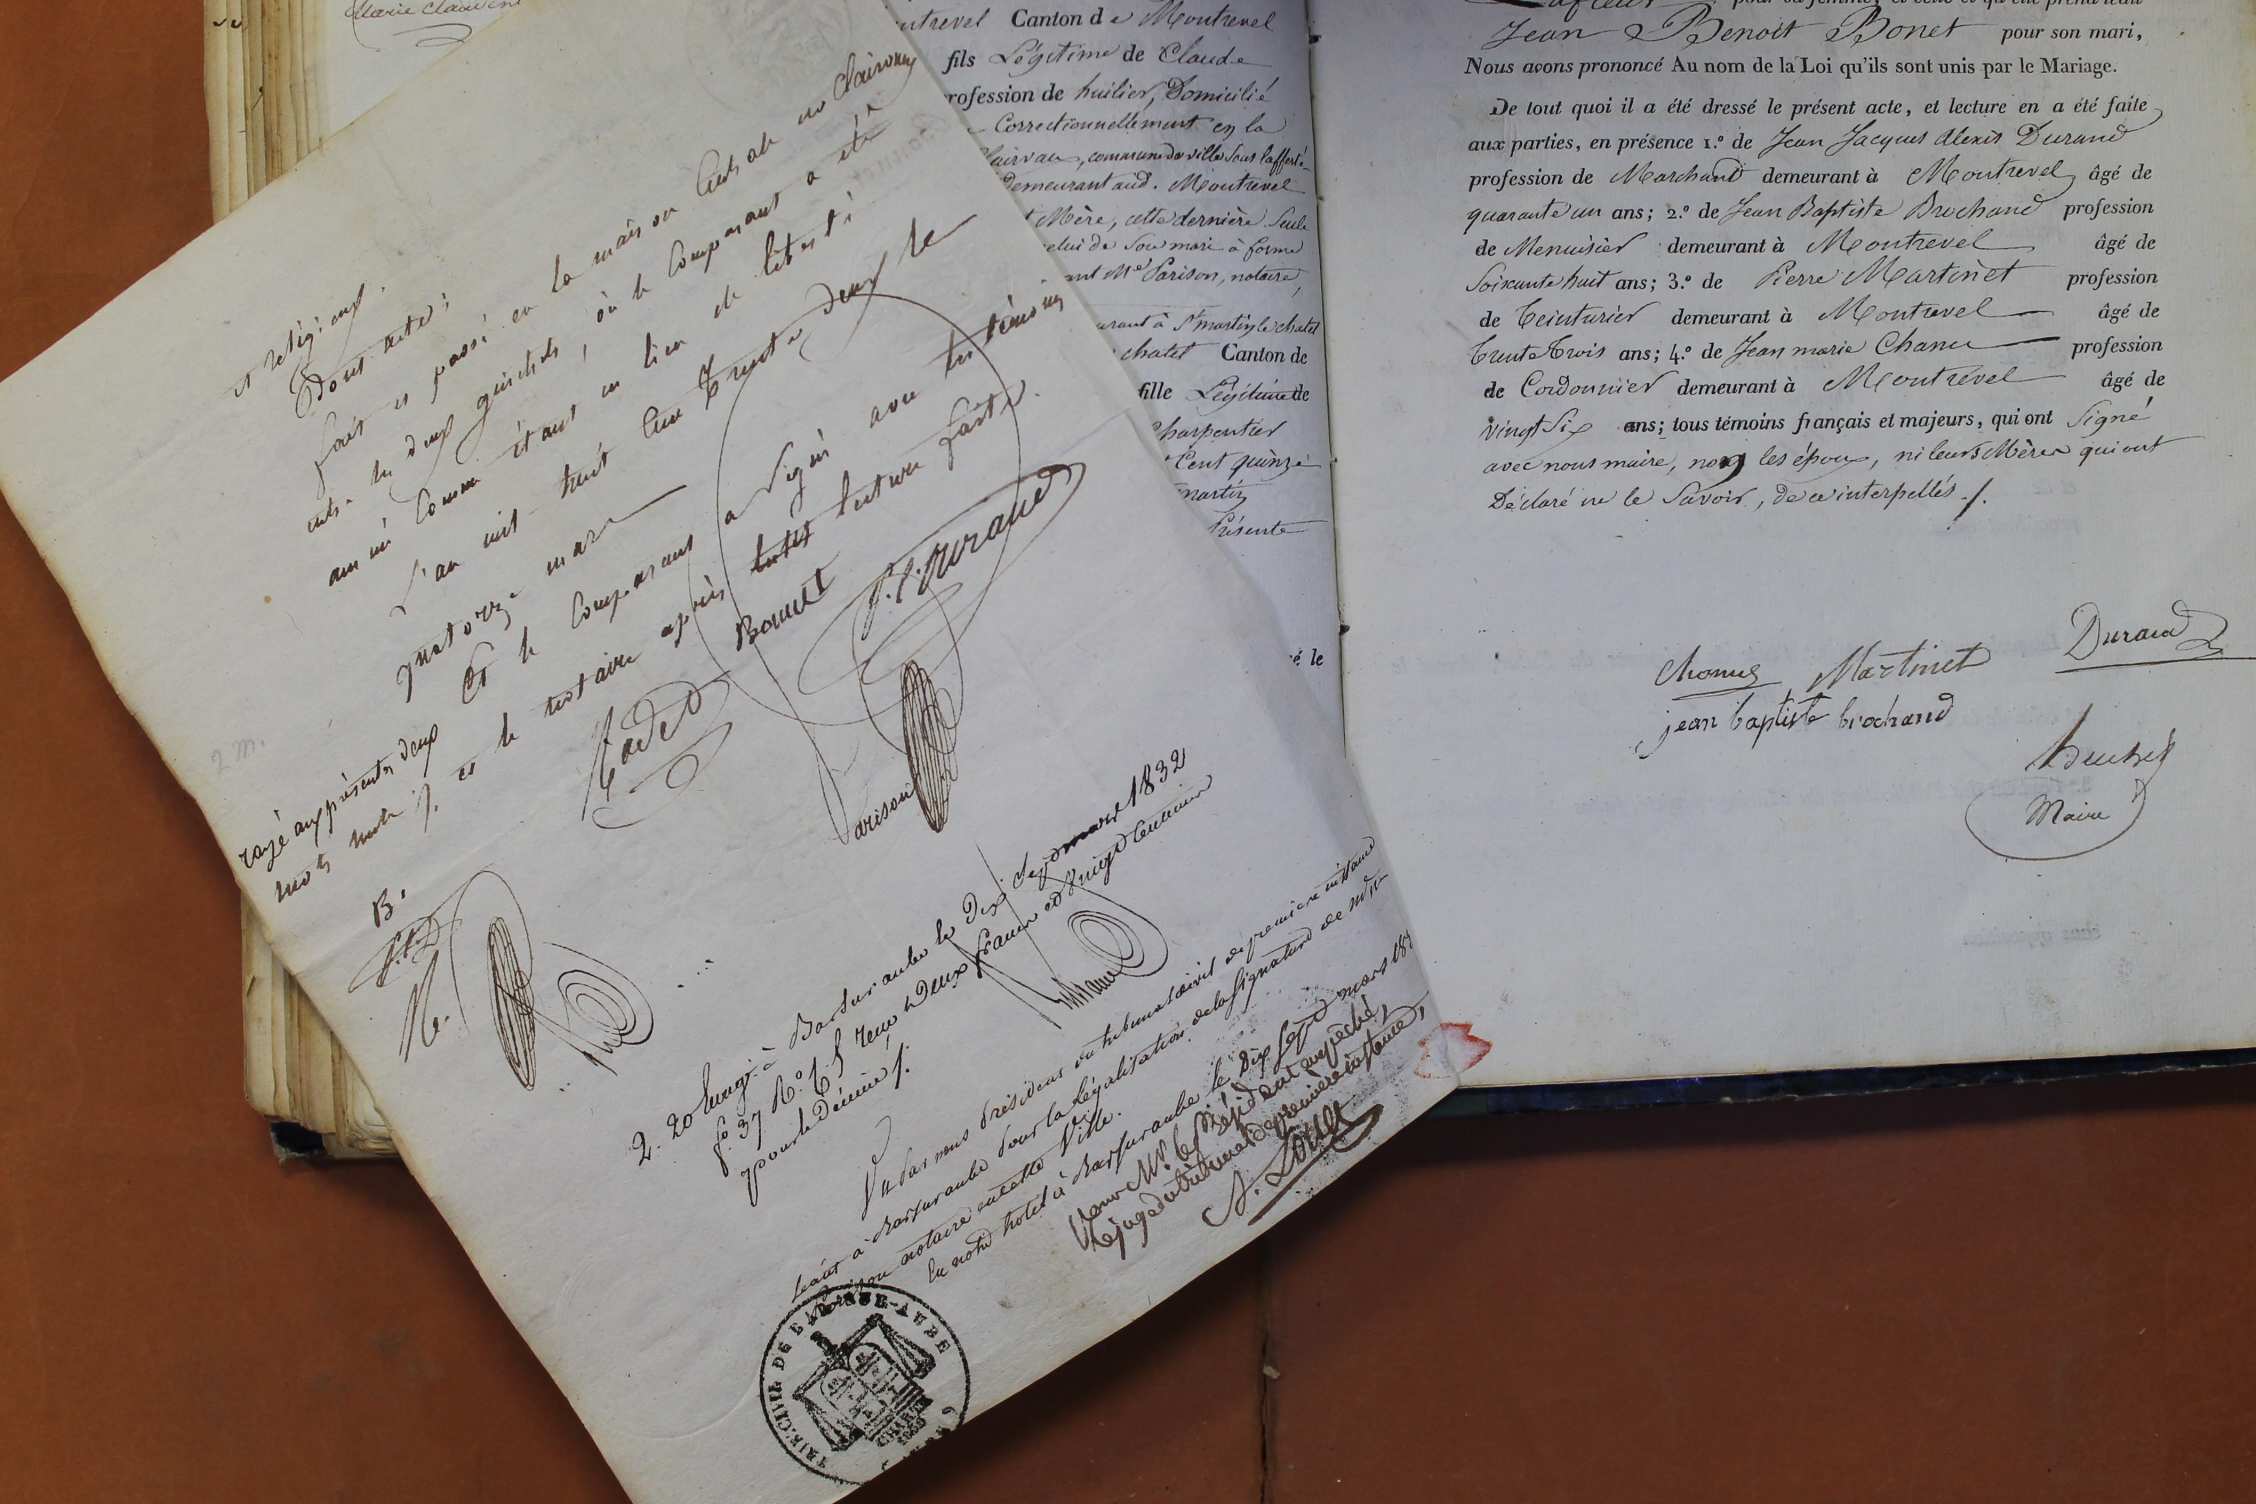 Marie Claudine
et religieux.
Dont acte;
fait et passé en la maison Centrale de Clairvaux
entre les deux guichets, où le Comparant a été
amené comme étant en lieu de liberté
L'an mil huit cent trente deux le
quatorze mars
Et le Comparant a signé avec les témoins
et le notaire après lecture faite.
rayé aux présentes deux
mots nuls
Bonnet
P. P. Durand
Cadet
Parison
B.
2.20 Enregé à Bar sur aube le Dix Sept mars 1832
fo. 37 Ro. C. 5 reçu Deux francs et Vingt Centimes
pour le Décime
Vu Par nous Président du tribunal civil de première instance
séant à Barsuraube Pour la Légalisation de la Signature de Me
Parison notaire en cette Ville.
En notre hotel à Barsuraube le Dix Sept mars 183
Pour Mr. le Président empêché,
Le juge du tribunal de première instance,
TRIB. CIVIL DE BAR-SUR-AUBE
ntrevel Canton de Montrevel
fils Légitime de Claude
rofession de huilier, Domicilié
Correctionnellement en la
Clairvaux, commune de ville sous laferté
demeurant aud. Montrevel
t Mère, cette dernière Seule
celui de Son mari à forme
ant Me Parison, notaire,
urant à St martin le chatel
chatel Canton de
fille Légitime de
Charpentier
Cent quinze
martin
Présente
é le
Jean Benoit Bonet pour son mari,
Nous avons prononcé Au nom de la Loi qu'ils sont unis par le Mariage.
De tout quoi il a été dressé le présent acte, et lecture en a été faite
aux parties, en présence 1.º de Jean Jacques Alexis Durand
profession de Marchand demeurant à Montrevel âgé de
quarante un ans; 2.º de Jean Baptiste Brochand profession
de Menuisier demeurant à Montrevel âgé de
Soixante huit ans; 3.º de Pierre Martinet profession
de Teinturier demeurant à Montrevel âgé de
trente trois ans; 4.º de Jean marie Chanu profession
de Cordonnier demeurant à Montrevel âgé de
vingt Six ans; tous témoins français et majeurs, qui ont Signé
avec nous maire, non les époux, ni leurs Mères qui ont
Déclaré ne le Savoir, de ce interpellés ./.
Martinet Durand
jean baptiste brochand
Maire